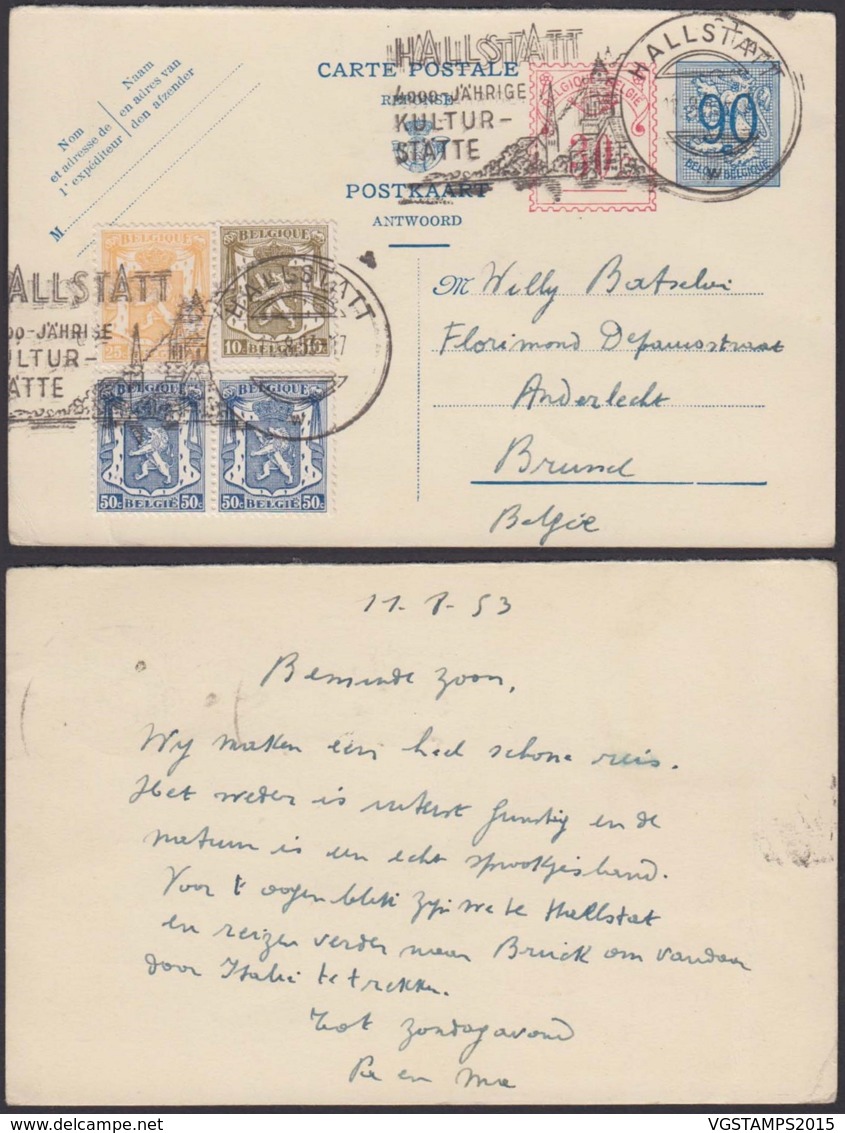 HALLSTATT
4000-JÄHRIGE
KULTUR-
STÄTTE
HALLSTATT
CARTE POSTALE
REPONSE
POSTKAART
ANTWOORD
Nom
et adresse de
l'expéditeur
Naam
en adres van
den afzender
M
BELGIQUE-BELGIË
30
90
BELGIE BELGIQUE
BELGIQUE
25
BELGIQUE
10 BELGIE 10
BELGIQUE
50c BELGIË 50c
BELGIQUE
50c BELGIË 50c
ALLSTATT
00-JÄHRIGE
ULTUR-
ÄTTE
HALLSTATT
M Willy Batselier
Florimond
Anderlecht
Brussel
België
11-8-53
Beminde zoon,
Wij maken een heel schone reis.
Het weder is uiterst gunstig en de
natuur is een echt sprookjesland.
Voor 't oogenblik zijn we te Hallstat
en reizen verder naar Bruck om vandaar
door Italie te trekken.
Tot zondagavond
Pa en Ma
delcampe.net
VGSTAMPS2015